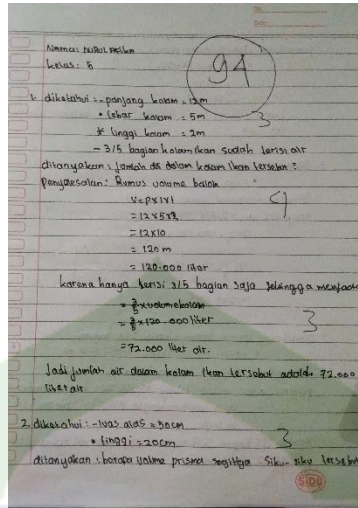 Nama: NURUL
kelas: 5
94
1. diketahui: - panjang kolam = 12m
• lebar kolam = 5m
3
* tinggi kolam = 2m
- 3/5 bagian kolam ikan sudah terisi air
ditanyakan: jumlah air dalam kolam ikan tersebut?
penyelesaian: Rumus volume balok
V=pxlxt
4
= 12x5x2
= 12x10
= 120 m
= 120.000 liter
karena hanya berisi 3/5 bagian saja sehingga menjadi
= 3/5 x volume kolam
= 3/5 x 120.000 liter
3
= 72.000 liter air.
Jadi jumlah air dalam kolam ikan tersebut adalah 72.000
liter air
2. diketahui: - luas alas = 50cm
• tinggi = 20cm
3
ditanyakan: berapa volume prisma segitiga siku-siku tersebut
SIDU